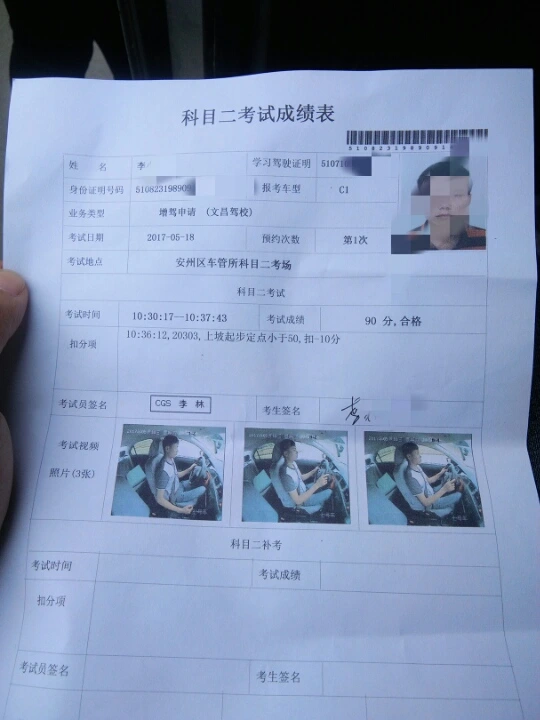 科目二考试成绩表
姓 名 李 学习驾驶证明 510710
身份证明号码 51082319890 报考车型 C1
业务类型 增驾申请 (文昌驾校)
考试日期 2017-05-18 预约次数 第1次
考试地点 安州区车管所科目二考场
科目二考试
考试时间 10:30:17—10:37:43 考试成绩 90 分,合格
扣分项 10:36:12,20303,上坡起步定点小于50,扣-10分
考试员签名 CGS 李 林 考生签名 李
考试视频
照片(3张)
科目二补考
考试时间 考试成绩
扣分项
考试员签名 考生签名